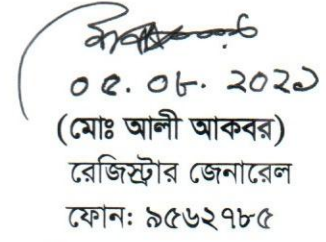 ০৫.০৮.২০২১
(মোঃ আলী আকবর)
রেজিস্ট্রার জেনারেল
ফোন: ৯৫৬২৭৮৫